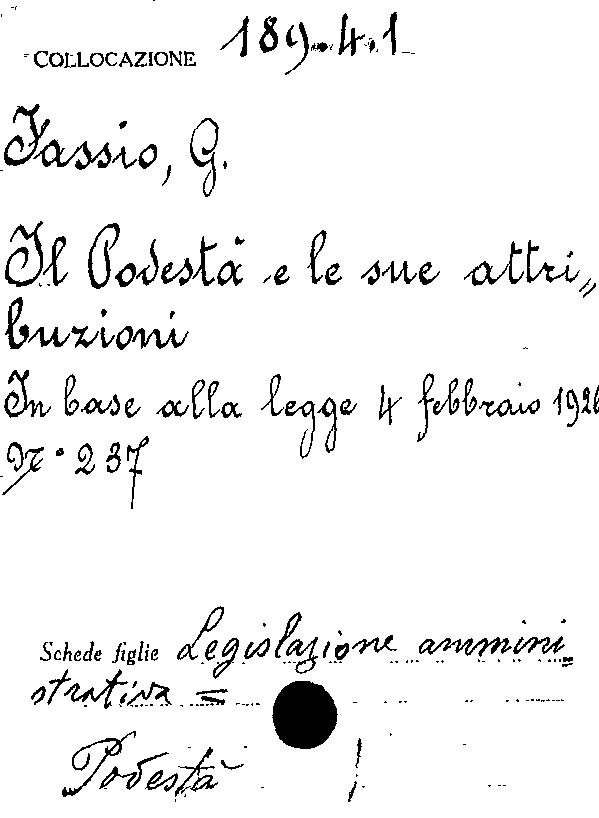 COLLOCAZIONE 189.4.1
Fassio, G.
Il Podestà e le sue attri„
buzioni
In base alla legge 4 febbraio 1926
N° 237
Schede figlie Legislazione ammini=
strativa =
Podestà /